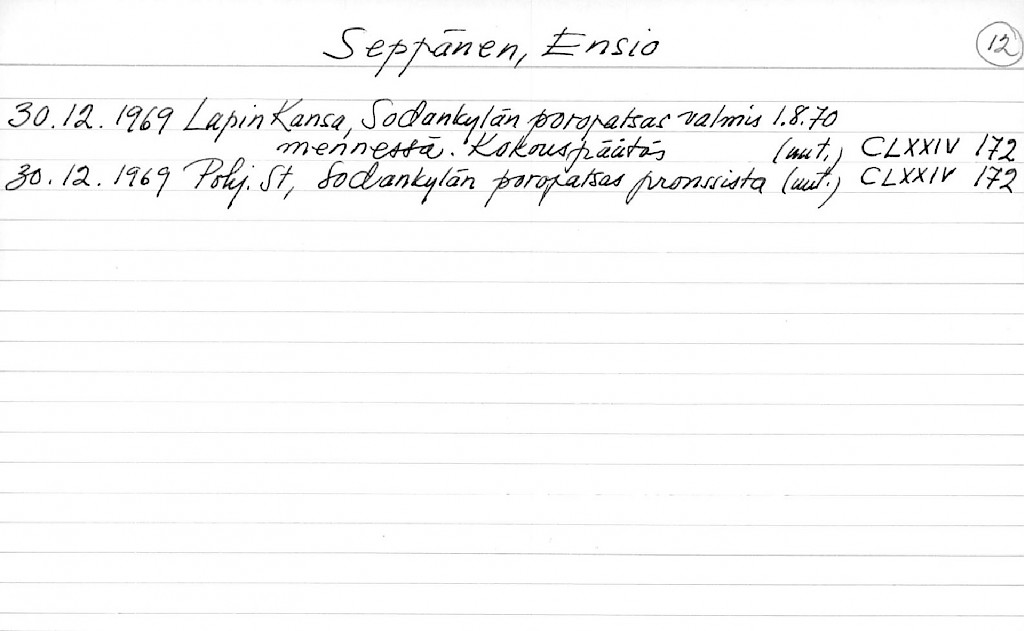 Seppänen, Ensio
12
30.12.1969 Lapin Kansa, Sodankylän poropatsas valmis 1.8.70
mennessä. Kokouspäätös (uut.) CLXXIV 172
30.12.1969 Pohj. St, Sodankylän poropatsas pronssista (uut.) CLXXIV 172